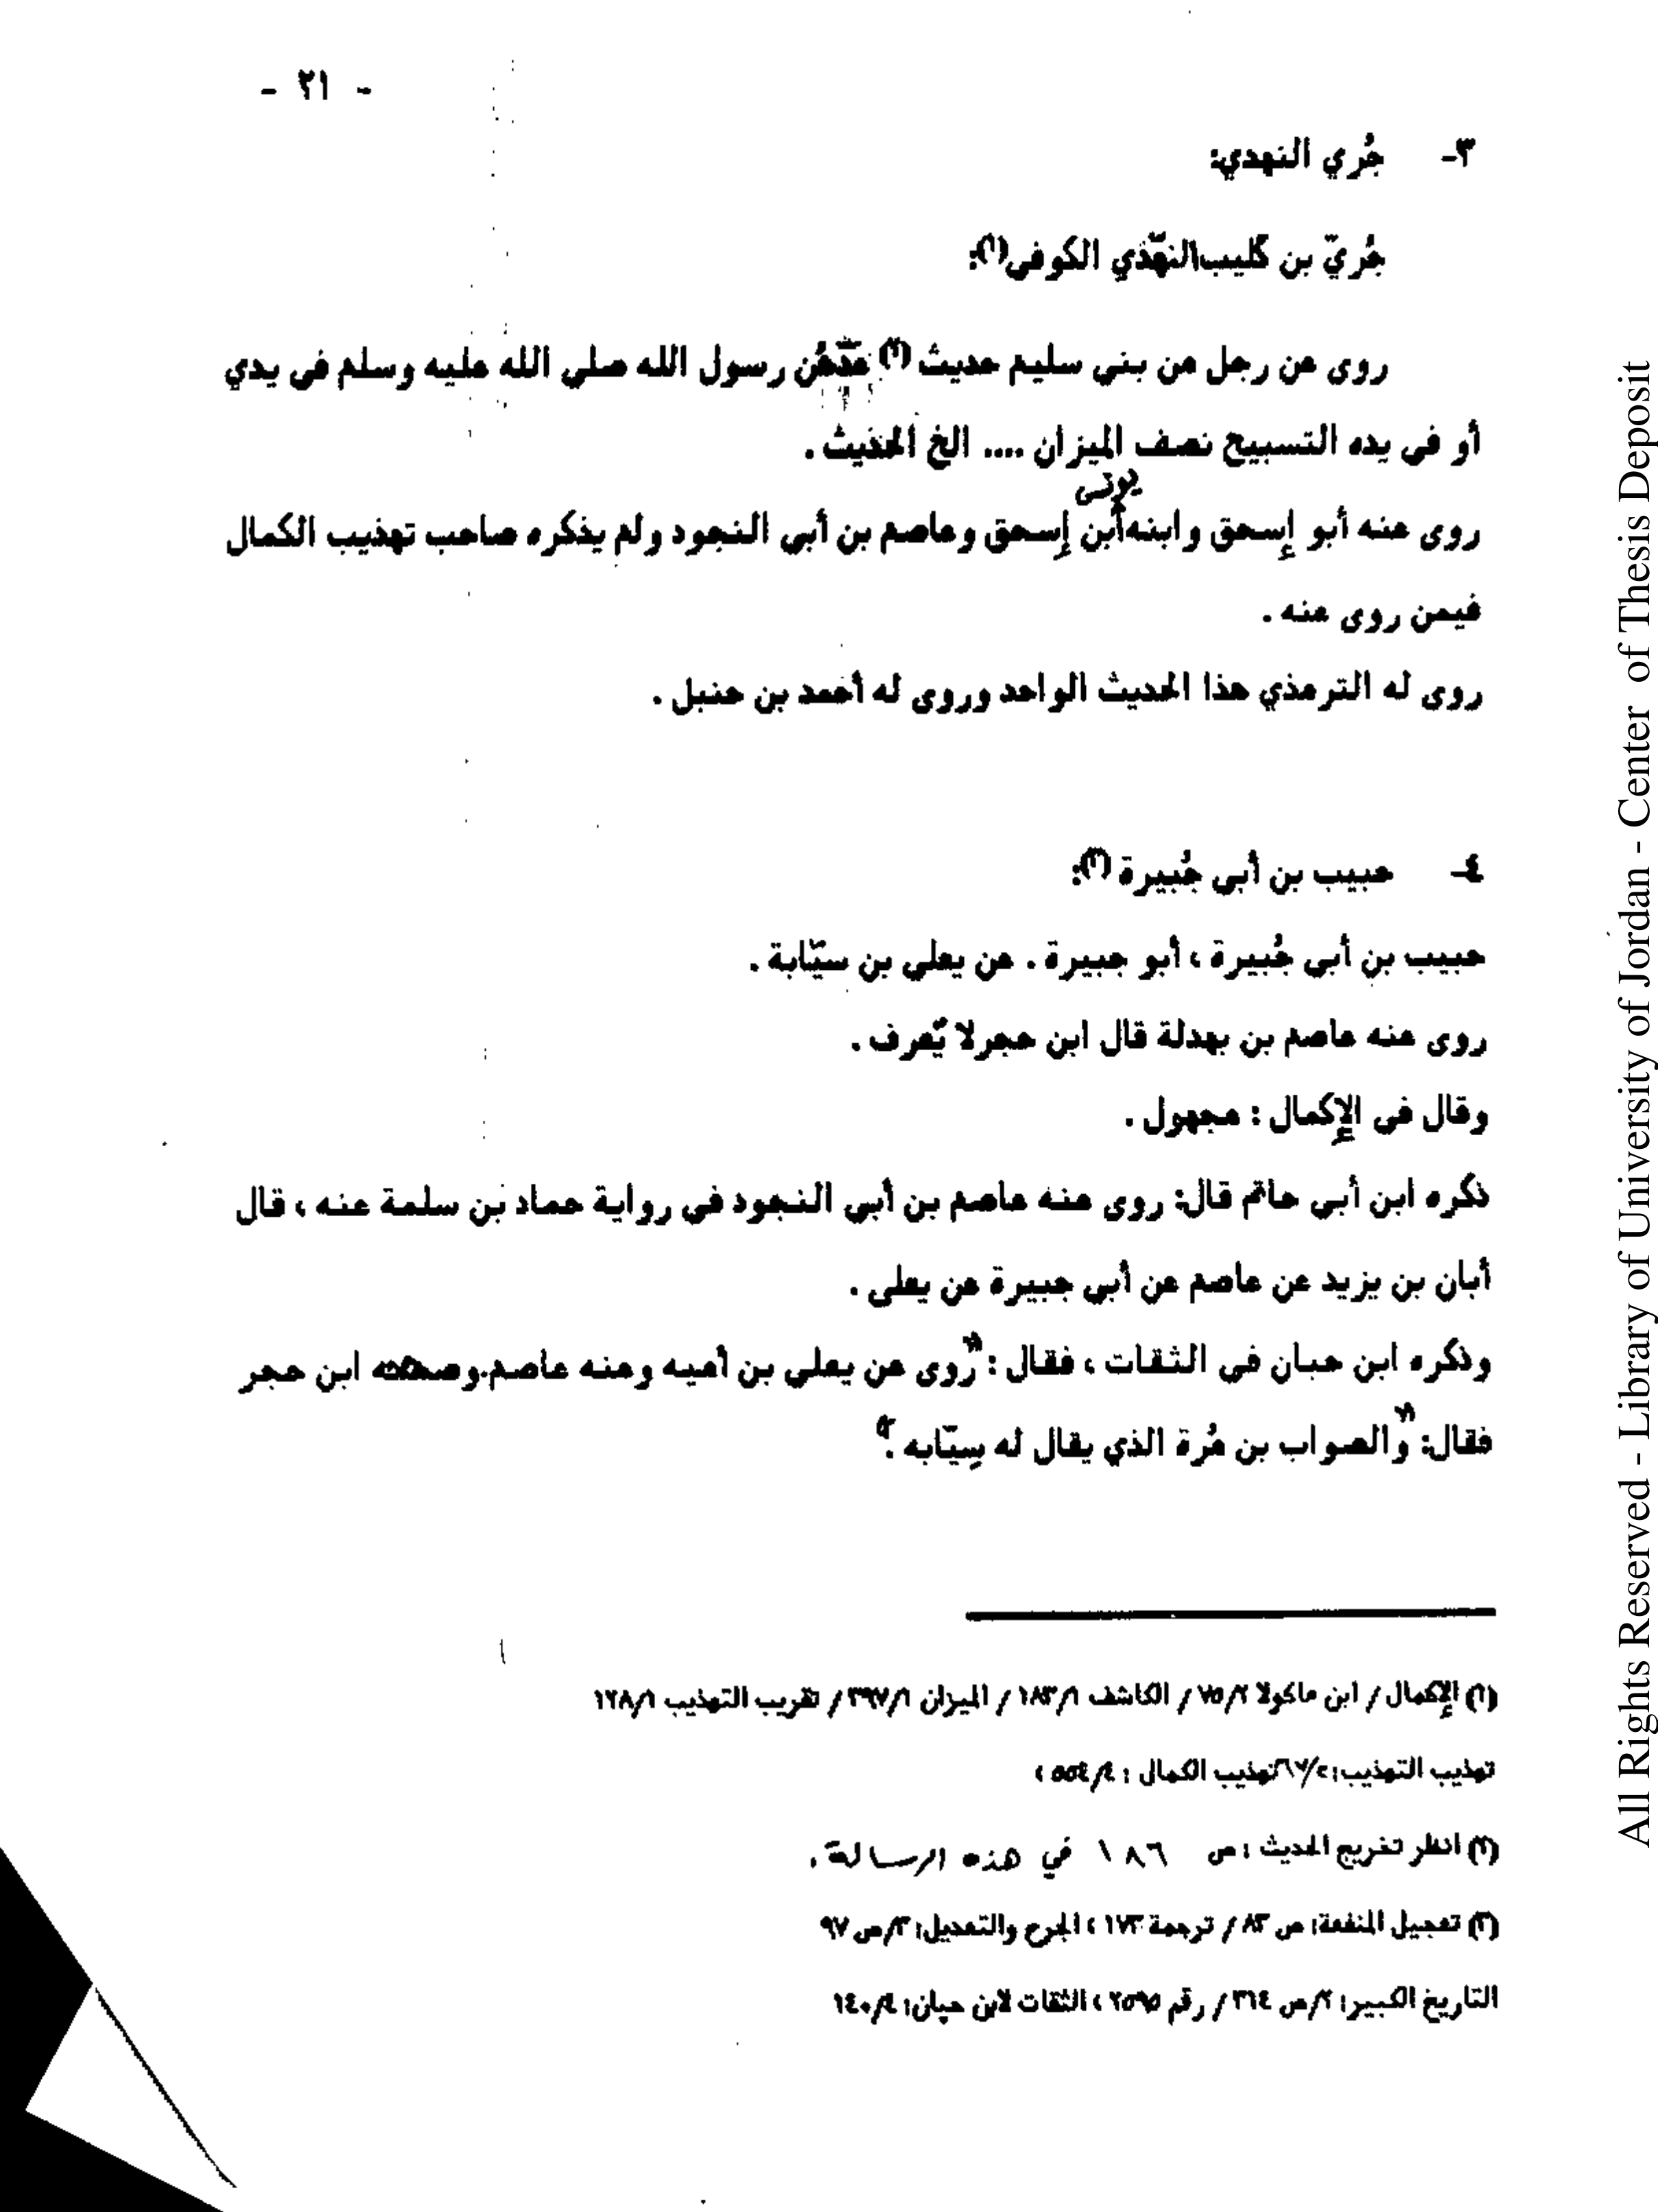 - ٢١ -
٣- جُري النهدي:
جُريّ بن كليب النهّدي الكوفى(١):
روى عن رجل من بني سليم حديث (٢) عدّهُن رسول الله صلي الله عليه وسلم فى يدي
أو فى يده التسبيح نصف الميزان .... الخ الحديث .
يونس
روى عنه أبو إسحق وابنه أبن إسحق وعاصم بن أبي النجود ولم يذكره صاحب تهذيب الكمال
فيمن روى عنه .
روى له الترمذي هذا الحديث الواحد وروى له أحمد بن حنبل .
٤- حبيب بن أبي جُبيرة (٣):
حبيب بن أبي جُبيرة ، أبو جبيرة . عن يعلي بن سيّابة .
روى عنه عاصم بن بهدلة قال ابن حجر لا يّعرف .
وقال فى الإكمال : مجهول .
ذكره ابن أبي حاتم قال: روى عنه عاصم بن أبي النجود في رواية حماد بن سلمة عنه ، قال
أبان بن يزيد عن عاصم عن أبي جبيرة عن يعلى .
وذكره ابن حبان فى الثقات ، فقال : "روى عن يعلي بن أميه وعنه عاصم. وصححه ابن حجر
فقال: "والصواب بن مُرة الذي يقال له سِيّابه ."
(١) الإكمال / ابن ماكولا ٧٥/٢ / الكاشف ١٨٣/١ / الميزان ٣٩٧/١ / تقريب التهذيب ١٢٨/١
تهذيب التهذيب: ٦٧/٢ تهذيب الكمال : ٥٥٤/٤ ،
(٢) انظر تخريج الحديث : ص ١٨٦ في هذه الرسالة .
(٣) تعجيل المنفعة: ص ٨٣ / ترجمة ١٧٣ ، الجرح والتعديل: ٣/ص ٩٧
التاريخ الكبير: ٢/ص ٣١٤ / رقم ٢٥٩٥ ، الثقات لابن حبان: ١٤٠/٤
All Rights Reserved - Library of University of Jordan - Center of Thesis Deposit